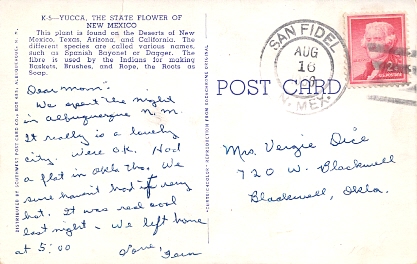 K-5—YUCCA, THE STATE FLOWER OF
NEW MEXICO
This plant is found on the Deserts of New
Mexico, Texas, Arizona, and California. The
different species are called various names,
such as Spanish Bayonet or Dagger. The
fibre is used by the Indians for making
Baskets, Brushes, and Rope, the Roots as
Soap.
Dear Mom:
We spent the night
in Albuquerque N. M.
It really is a lovely
city. Were O.K. Had
a flat in Okla tho. We
sure haven't had it very
hot. It was real cool
last night - We left home
at 5:00
Love,
POST CARD
SAN FIDEL
AUG
16
N. MEX.
Mrs. Vergie Dice
720 W. Blackwell
Blackwell, Okla.